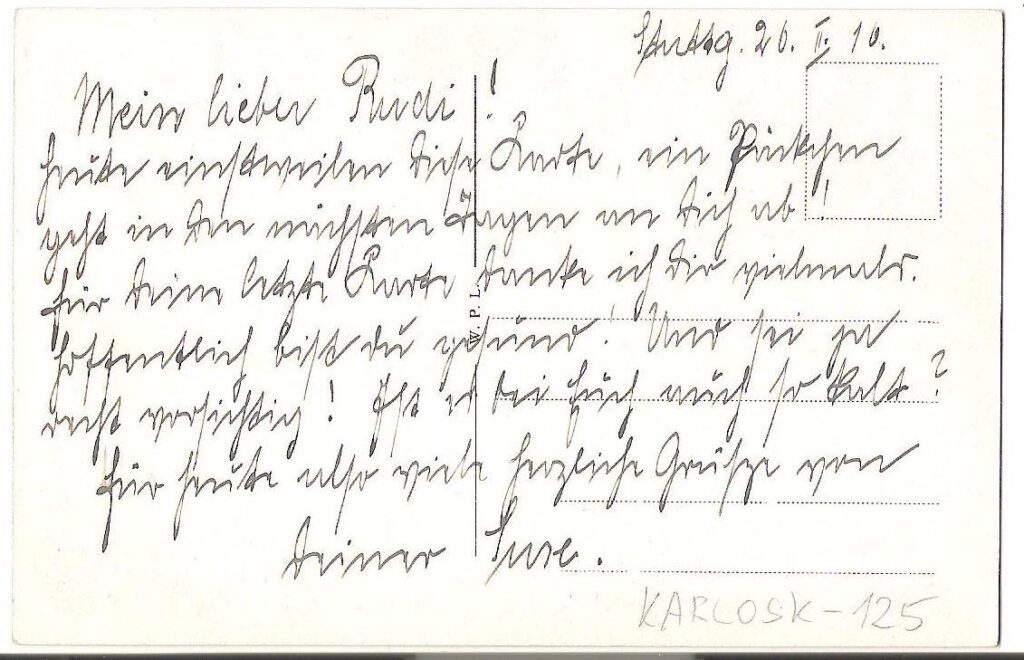 Stuttg. 26. II. 16.
Mein lieber Rudi!
Heute einstweilen diese Karte, ein Päckchen
geht in den nächsten Tagen an Dich ab!
Für Deine letzte Karte danke ich Dir vielmals.
Hoffentlich bist du gesund! Und sei ja
recht vorsichtig! Ist es bei Euch auch so kalt?
Für heute also viele herzliche Grüsze von
Deiner Suse.
W. P. L.
KARLOSK-125